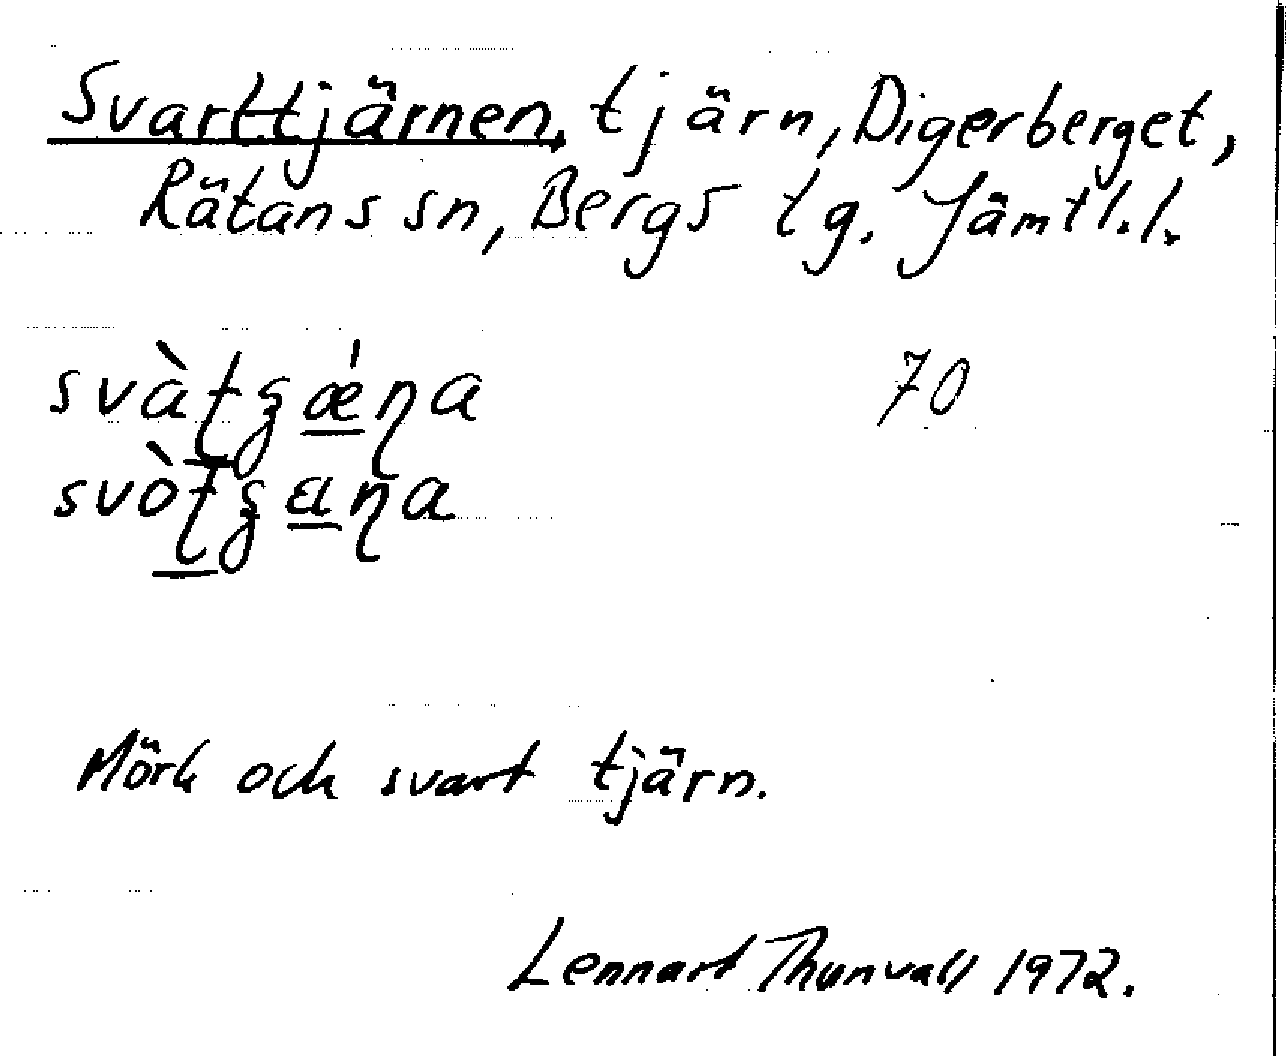 Svarttjärnen, tjärn, Digerberget,
Rätans sn, Bergs tg. Jämtl.l.
svàʈʂǽɳa 70
svòʈʂaɳa
Mörk och svart tjärn.
Lennart Thunvall 1972.